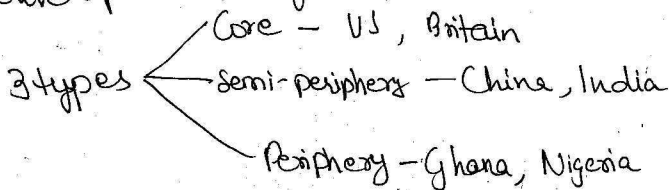 Core - US, Britain
3 types
Semi-periphery - China, India
Periphery - Ghana, Nigeria